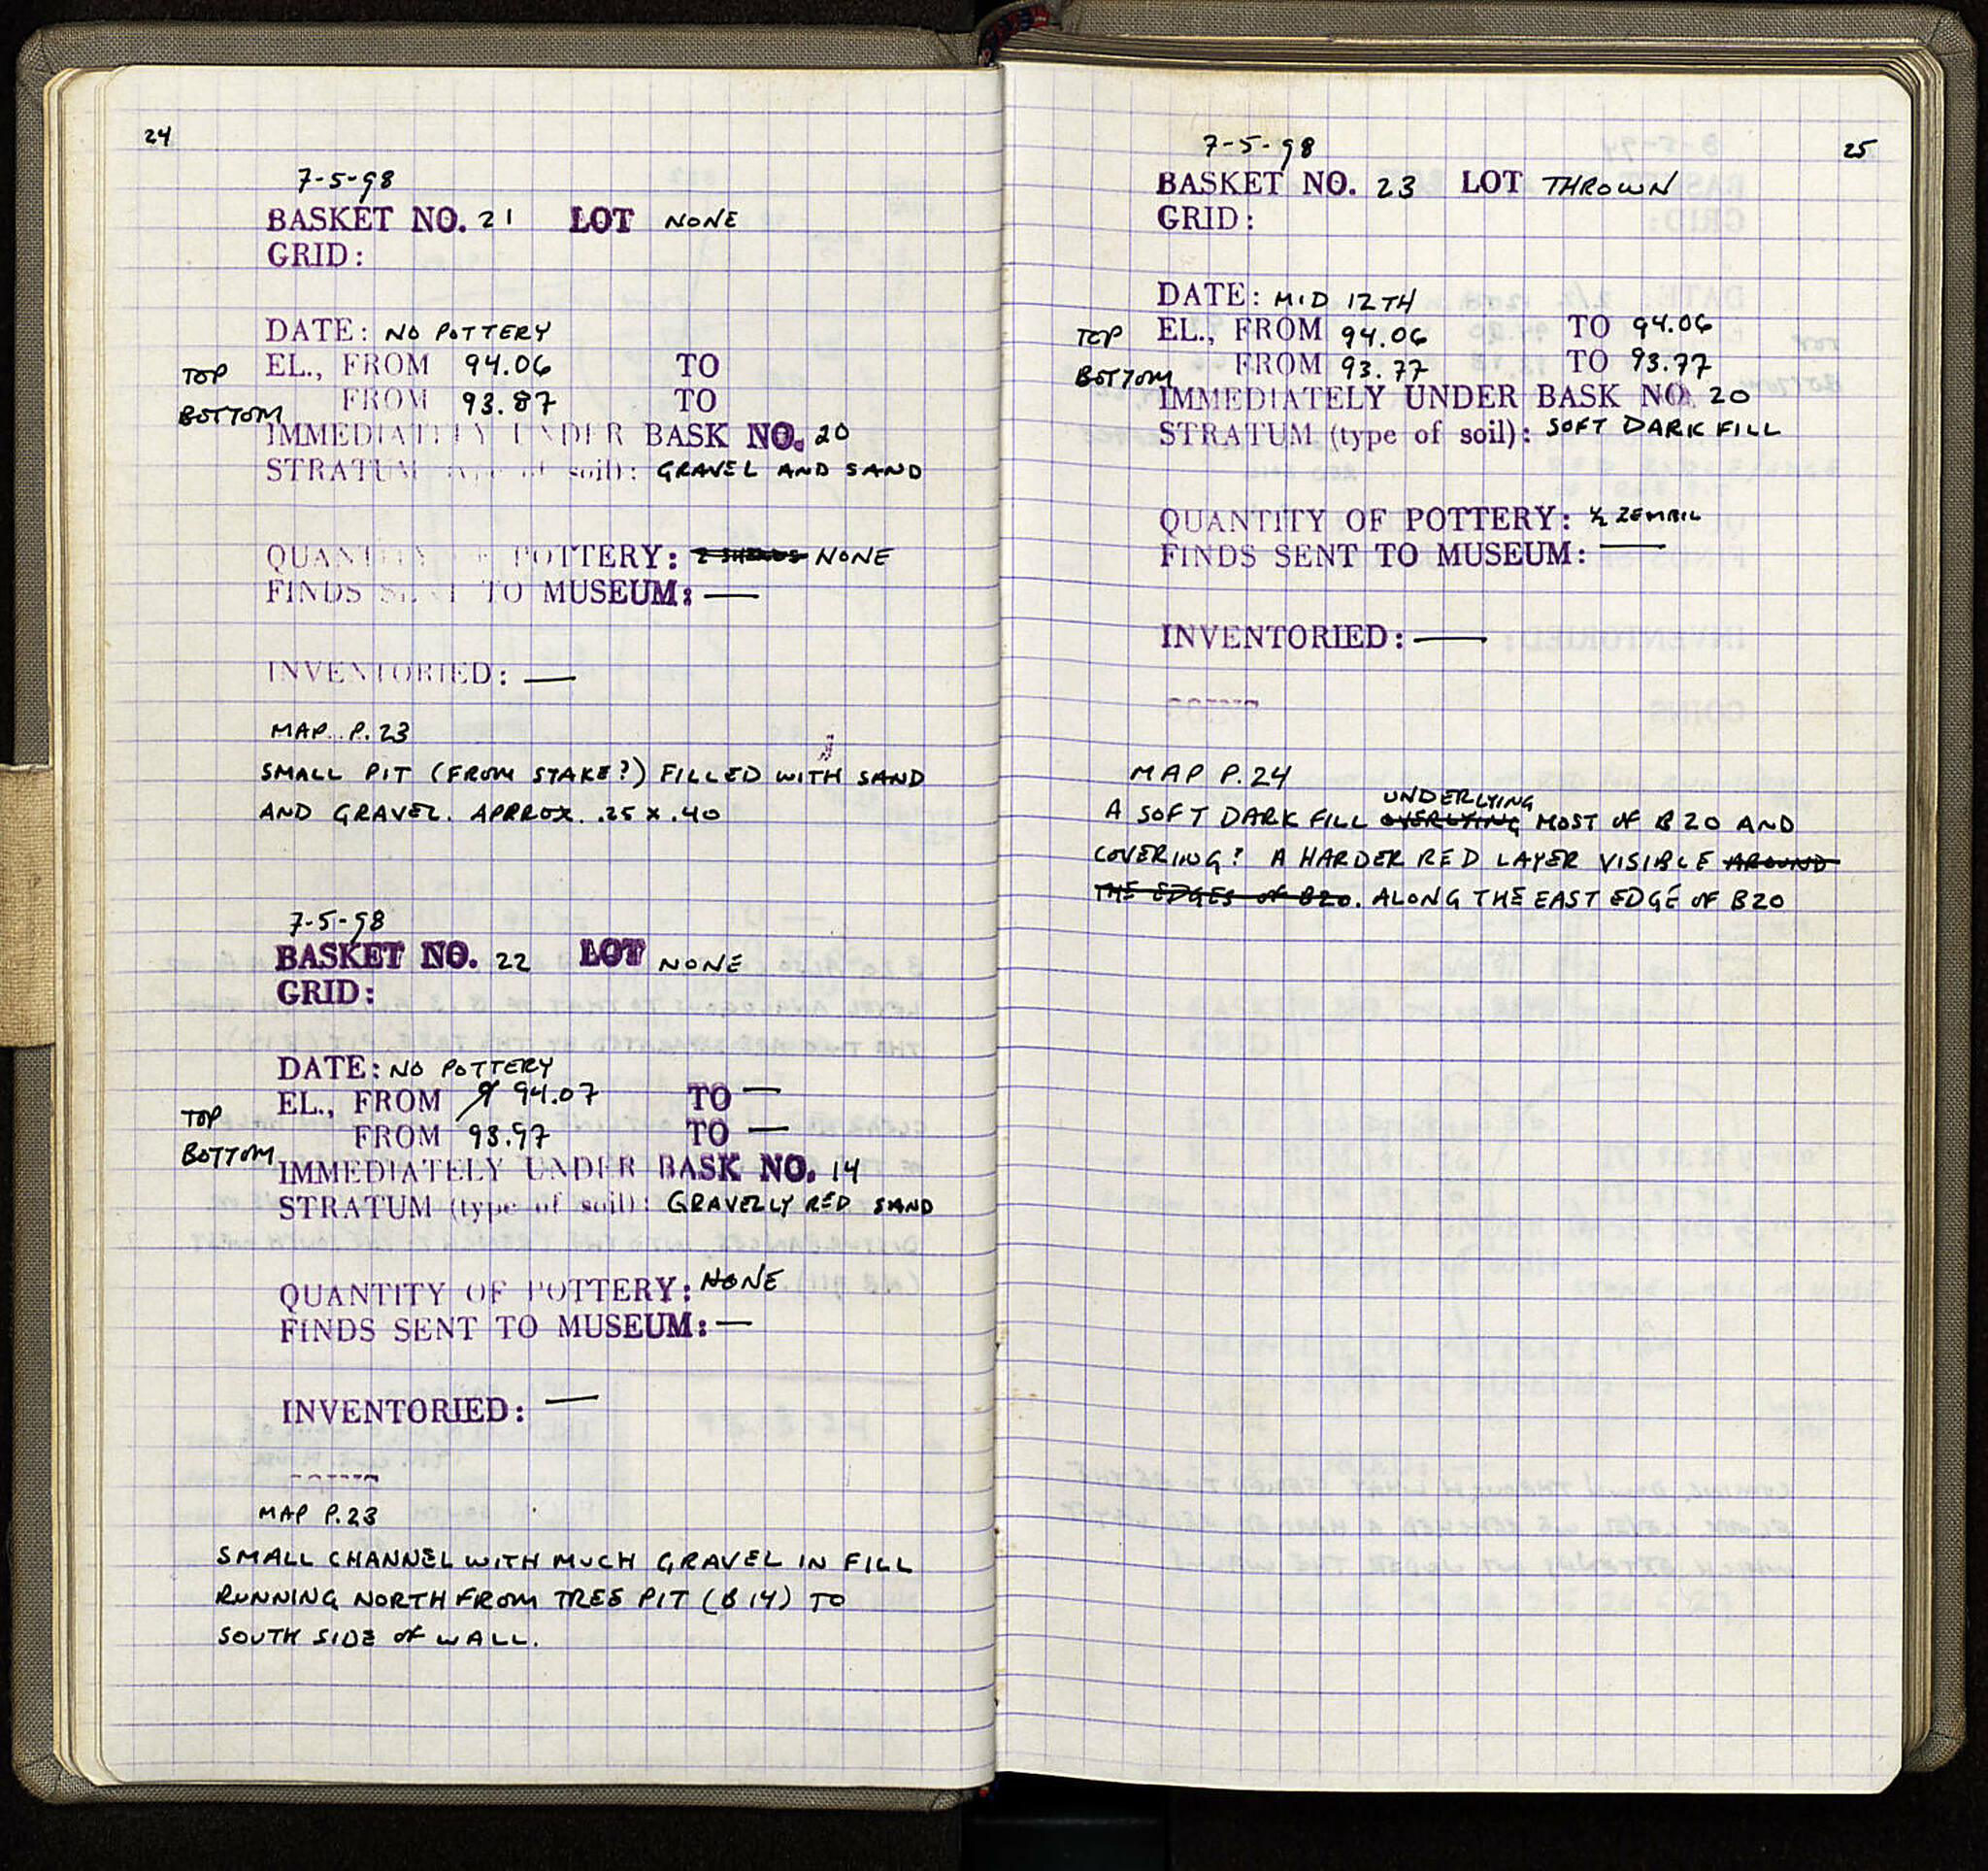 24
7-5-98
BASKET NO. 21 LOT NONE
GRID:
DATE: NO POTTERY
TOP EL., FROM 94.06 TO
BOTTOM FROM 93.87 TO
IMMEDIATELY UNDER BASK NO. 20
STRATUM (type of soil): GRAVEL AND SAND
QUANTITY OF POTTERY: 2 SHERDS NONE
FINDS SENT TO MUSEUM: —
INVENTORIED: —
MAP P. 23
SMALL PIT (FROM STAKE?) FILLED WITH SAND
AND GRAVEL. APPROX. .25 x .40
7-5-98
BASKET NO. 22 LOT NONE
GRID:
DATE: NO POTTERY
TOP EL., FROM 94.07 TO —
BOTTOM FROM 93.97 TO —
IMMEDIATELY UNDER BASK NO. 14
STRATUM (type of soil): GRAVELLY RED SAND
QUANTITY OF POTTERY: NONE
FINDS SENT TO MUSEUM: —
INVENTORIED: —
MAP P. 23
SMALL CHANNEL WITH MUCH GRAVEL IN FILL
RUNNING NORTH FROM TREE PIT (B 14) TO
SOUTH SIDE OF WALL.
25
7-5-98
BASKET NO. 23 LOT THROWN
GRID:
DATE: MID 12TH
TOP EL., FROM 94.06 TO 94.06
BOTTOM FROM 93.77 TO 93.77
IMMEDIATELY UNDER BASK NO. 20
STRATUM (type of soil): SOFT DARK FILL
QUANTITY OF POTTERY: ½ ZEMBIL
FINDS SENT TO MUSEUM: —
INVENTORIED: —
COINS
MAP P. 24
UNDERLYING
A SOFT DARK FILL OVERLYING MOST OF B 20 AND
COVERING? A HARDER RED LAYER VISIBLE AROUND
THE EDGES OF B20. ALONG THE EAST EDGE OF B20